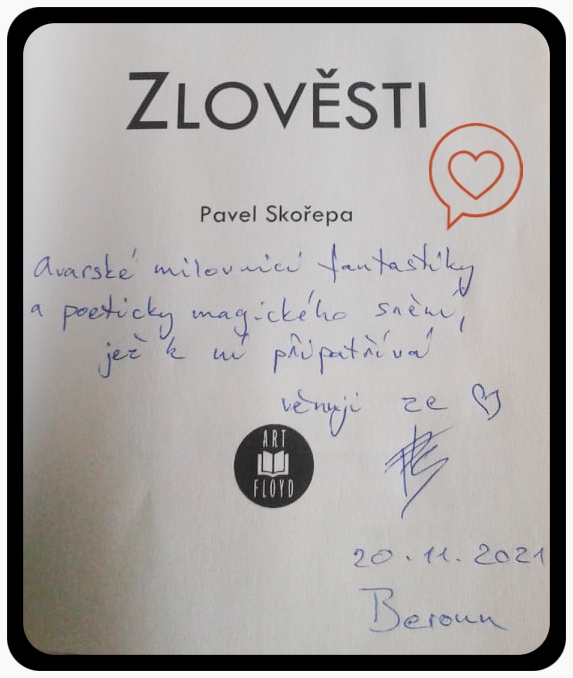 ZLOVĚSTI
Pavel Skořepa
Avarské milovnici fantastiky
a poeticky magického snění,
jež k ní připatřívá
věnuji ze
ART
FLOYD
20.11.2021
Beroun